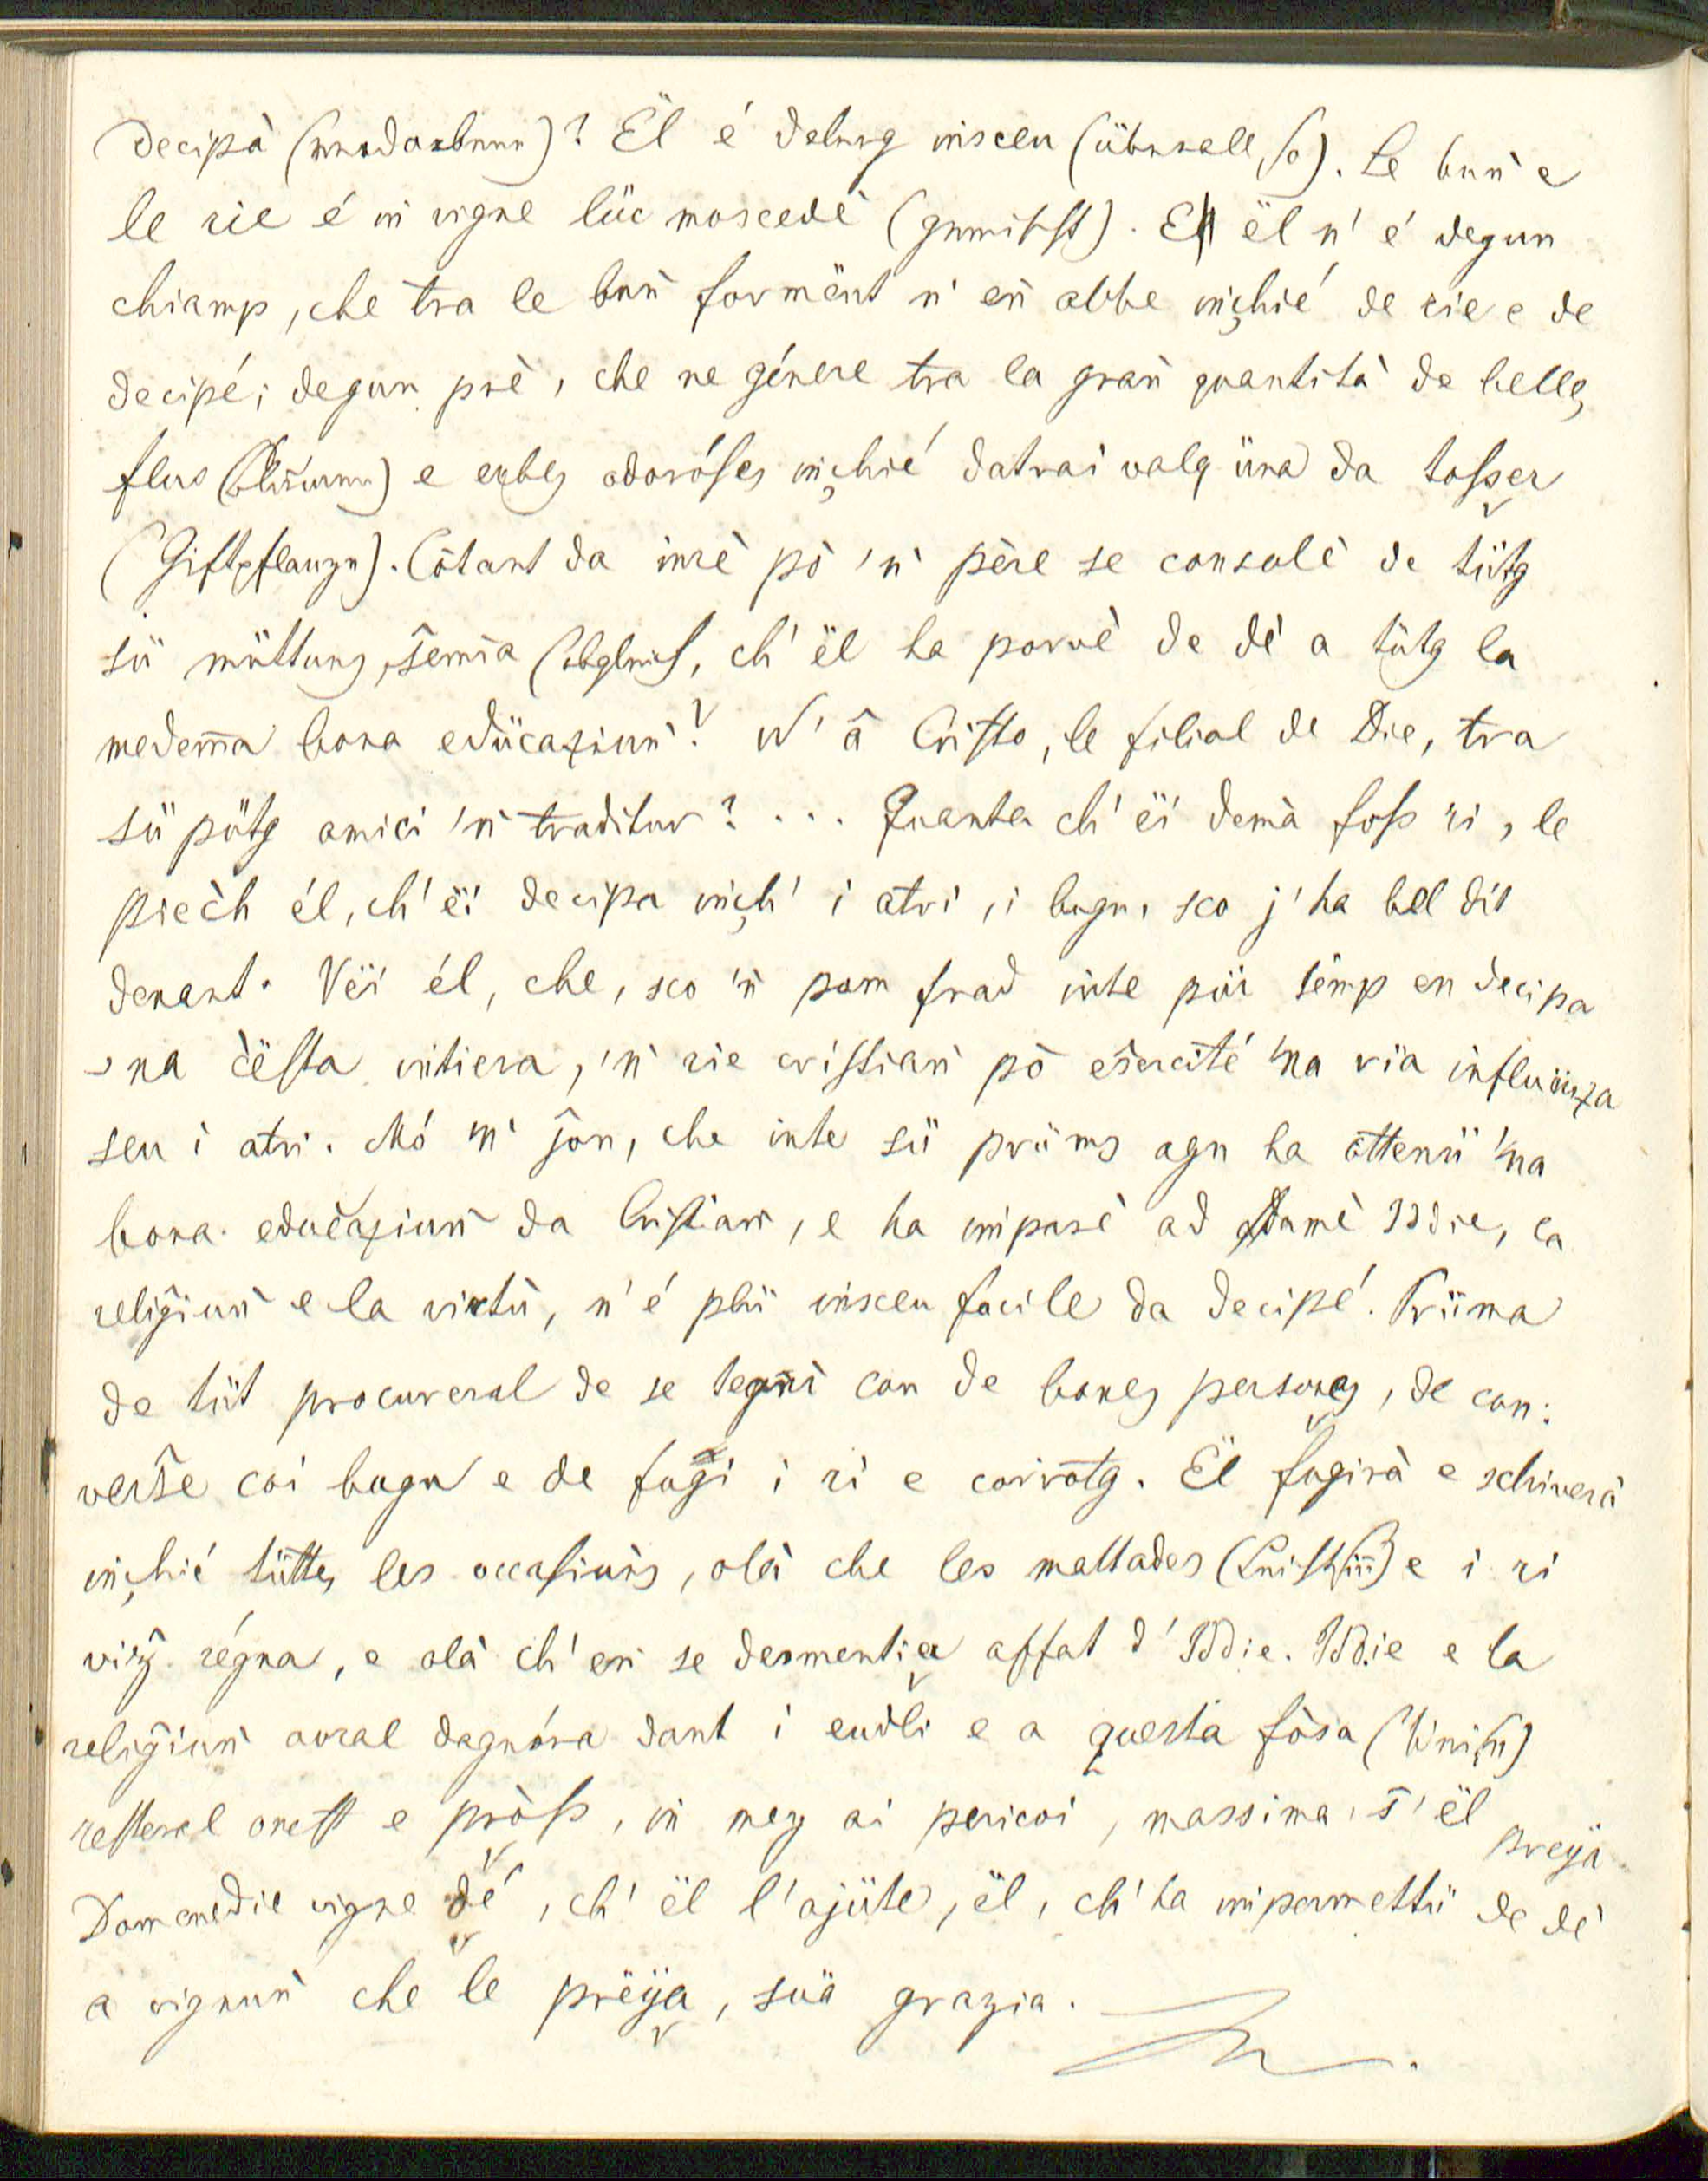 decipà (verdorben)? Ël é delung insceu (überall so). Le buǹ e
le rie é iǹ vigne lüc moscedè (gemischt). E ël n' é degun
chiamp, che tra le buǹ formënt n' eǹ abbe inçhié de rie e de
decipé; degun prè, che ne génere tra la graǹ quantità de belles
flus (Blumen) e erbes adoróses inçhié datrai valgüna da tosser
(Giftpflanzen). Cotant da inrè pò 'ǹ père se consolè de tütg
sü müttuns, s̄emia (obgleich, ch' ël ha porvè de dè a tütg la
medema bona edücaziuǹ? N' â Cristo, le filiol de Die, tra
sü pötg amici 'ǹ traditur? ... Quanta ch' ëi demà foss ri, le
piech él, ch' ëi decipa inçh' i atri, i bugn, sco j' ha bel dit
denant. Vëi él, che, sco 'ǹ pom frad inte püc temp en decipa
'na cësta intiera, 'ǹ rie cristiaǹ pò esercité 'na ria influënza
seu i atri. Mó 'ǹ jon, che inte sü prüms agn ha ottenü 'na
bona educaziuǹ da Cristiaǹ, e ha imparè ad amè Iddie, la
religiuǹ e la virtù, n' é plü insceu facile da decipé. Prüma
de tüt procureral de se tegnì con de bones persones, de con:
verse coi bugn e de fugì i ri e corrotg. Ël fugirà e schiverà
inçhié tüttes les occasiuǹs, olà che les mattades e i ri
vizj régna, e olà ch' eǹ se desmentiea affat d' Iddie. Iddie e la
religiuǹ avral dagnóra dant i eudli e a questa fòsa (Weise)
resteral onest e pròss, iǹ mez ai pericoi, massima, s' ël preya
Domenedie vigne dé, ch' ël l' ajüte, ël, ch' ha impermettü de dè
a vignuǹ che le prëya, süa grazia.